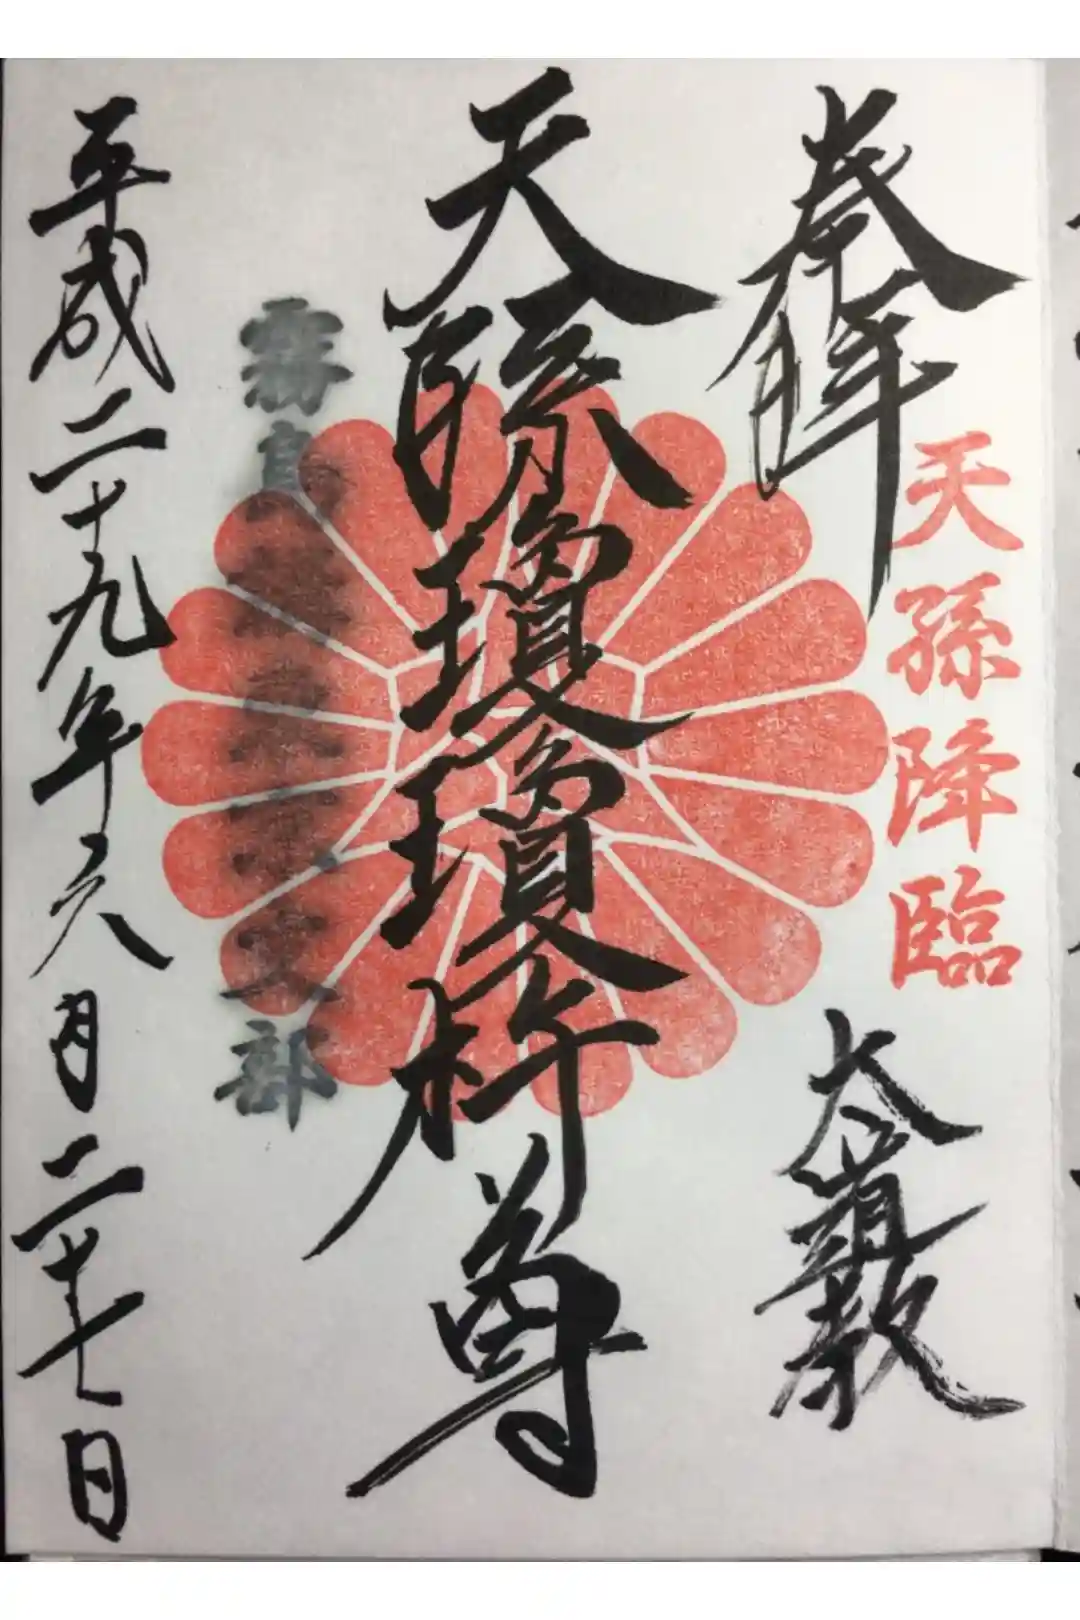 奉拝
天孫降臨
大道教
天孫瓊瓊杵尊
霧島
部
平成二十九年六月二十七日